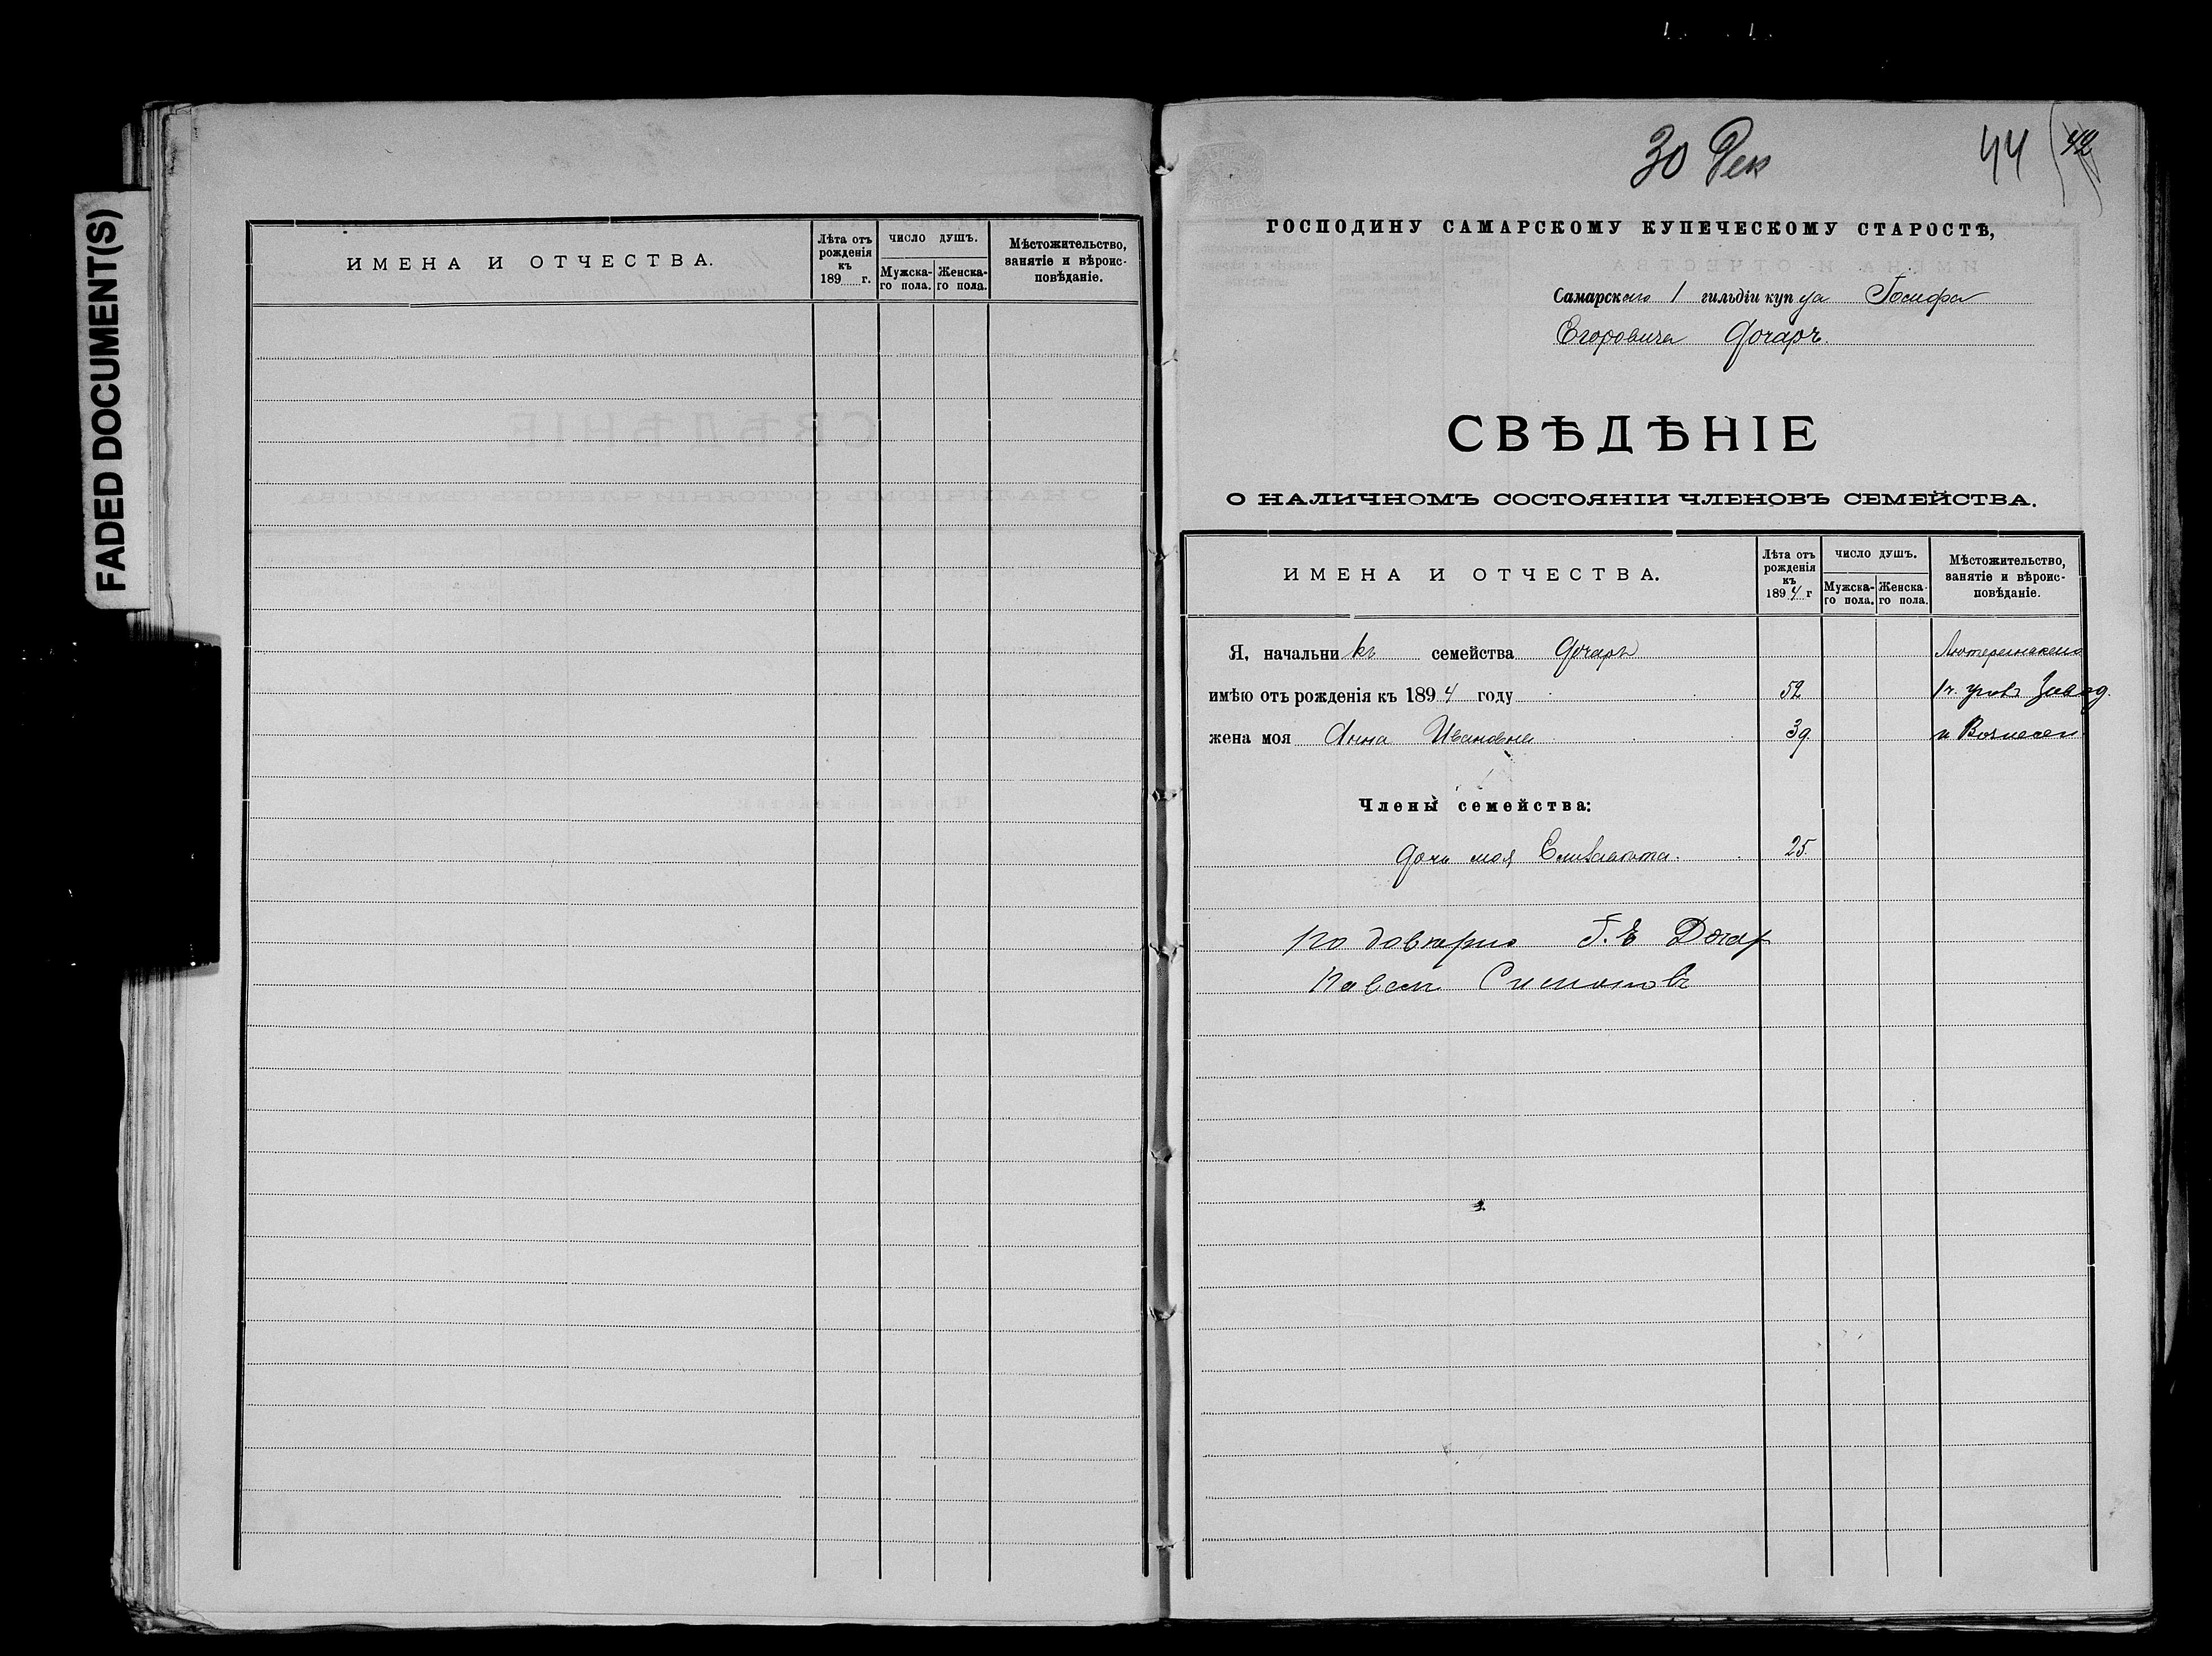 FADED DOCUMENT(S)
ИМЕНА И ОТЧЕСТВА.
Лѣта отъ рожденія къ 189 г.
ЧИСЛО ДУШЪ.
Мужска-го пола.
Женска-го пола.
Мѣстожительство, занятіе и вѣроис-повѣданіе.
30 Дек
44
42
ГОСПОДИНУ САМАРСКОМУ КУПЕЧЕСКОМУ СТАРОСТѢ,
Самарскаго 1 гильдіи купца Іосифа
Егоровича Дочаръ.
СВѢДѢНІЕ
О НАЛИЧНОМЪ СОСТОЯНІИ ЧЛЕНОВЪ СЕМЕЙСТВА.
ИМЕНА И ОТЧЕСТВА.
Лѣта отъ рожденія къ 1894 г
ЧИСЛО ДУШЪ.
Мужска-го пола.
Женска-го пола.
Мѣстожительство, занятіе и вѣроис-повѣданіе.
Я, начальникъ семейства Дочаръ
имѣю отъ рожденія къ 1894 году 52
жена моя Анна Ивановна 39 и Вознесен
Члены семейства:
дочь моя Елизавета. 25
По довѣрію І. Е Дочар
Павел Симонов